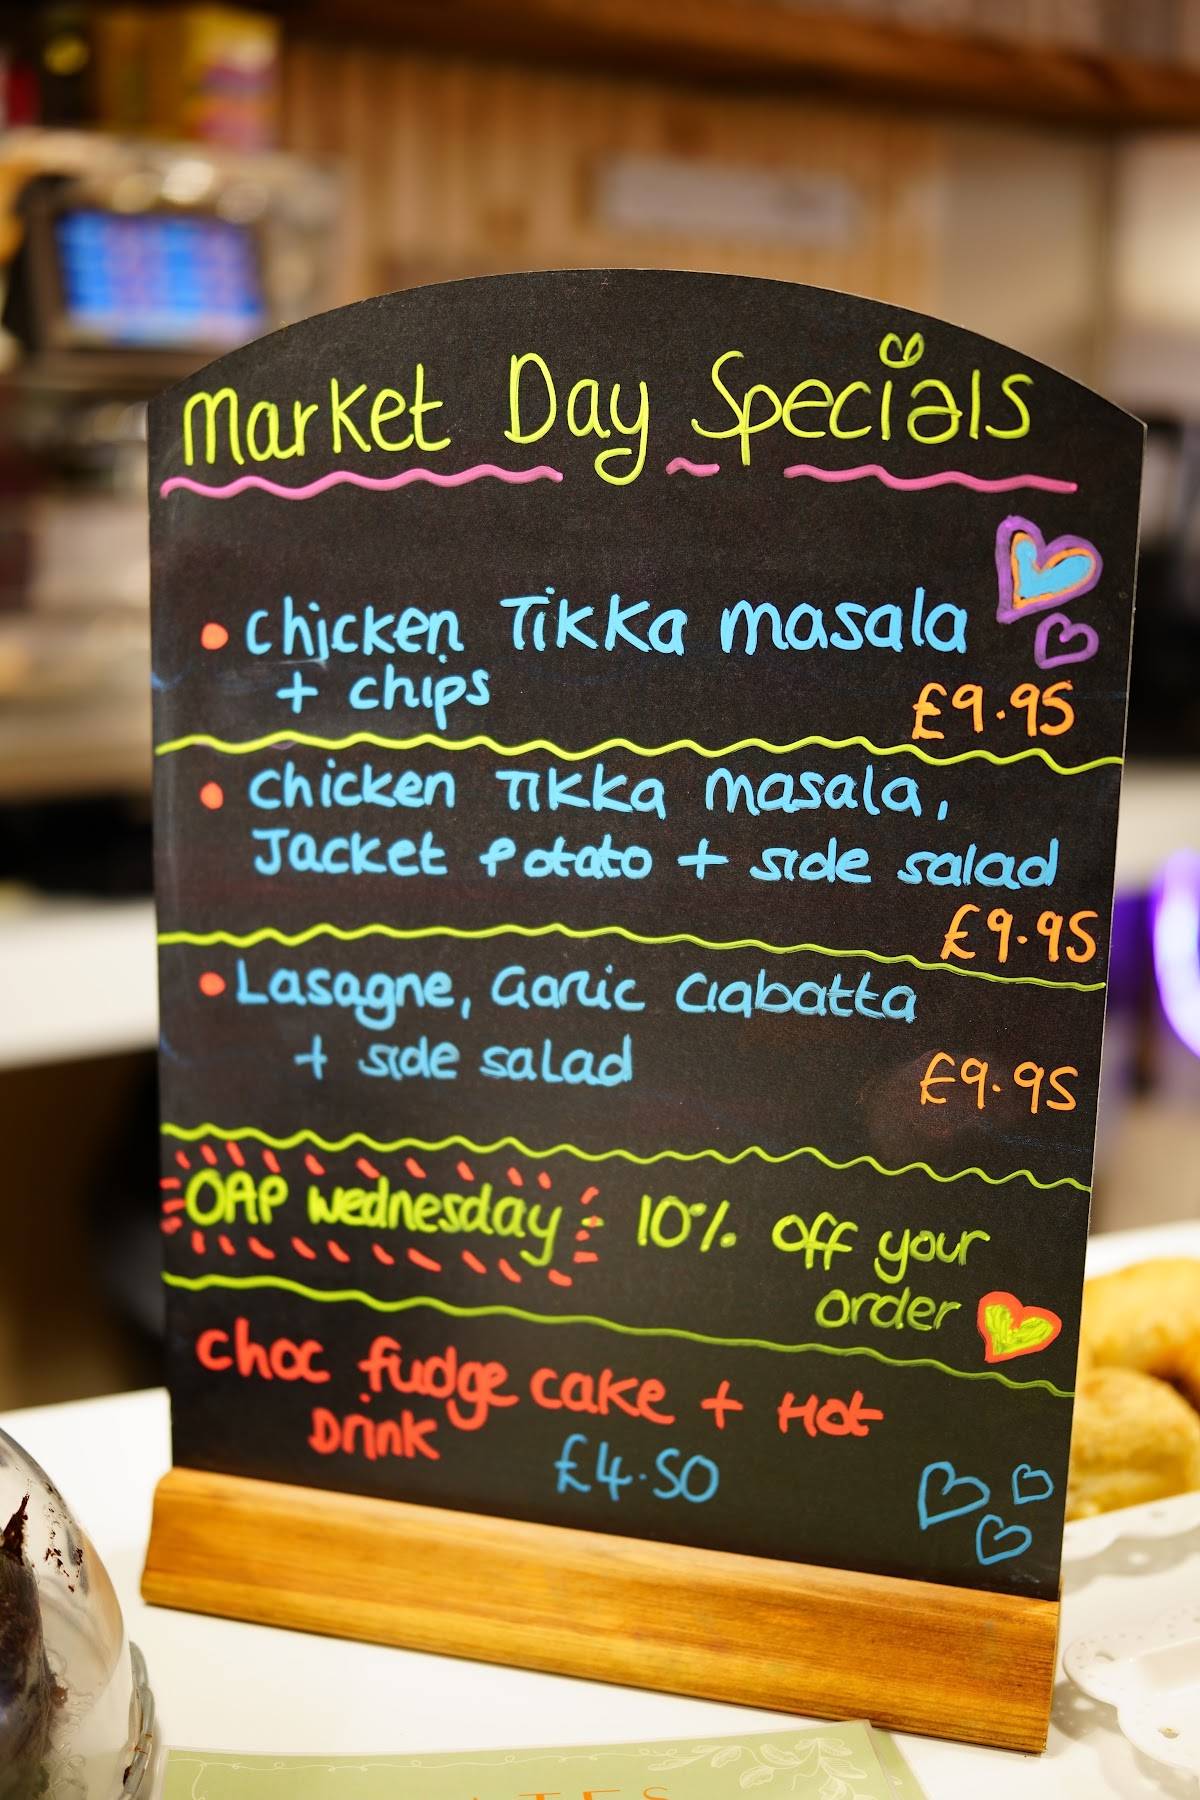 Market Day Specials
• Chicken Tikka masala
+ chips
£9.95
• Chicken Tikka masala,
Jacket Potato + side salad
£9.95
• Lasagne, Garlic Ciabatta
+ side salad
£9.95
OAP Wednesday: 10% off your
order
choc fudge cake + Hot
Drink £4.50